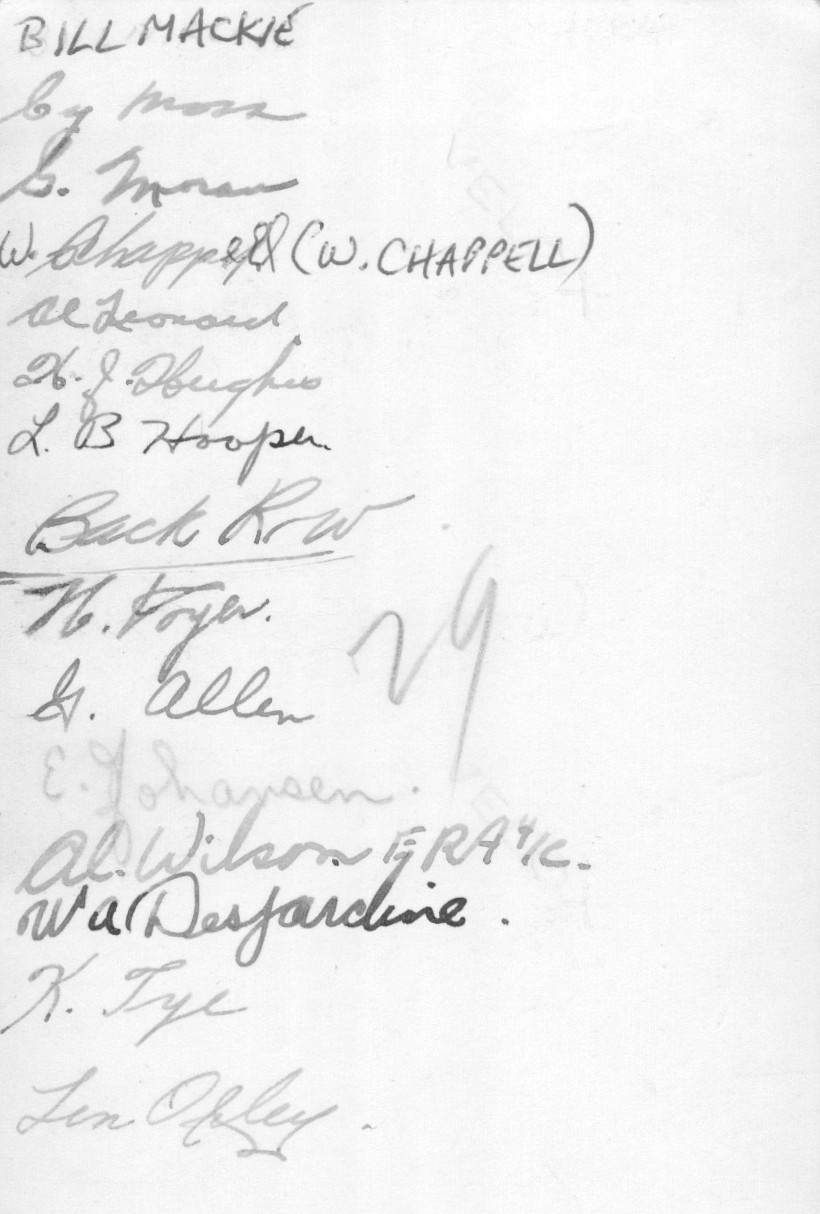 BILL MACKIE
Cy Moss
G. Moran
W. Chappell (W. CHAPPELL)
Al Leonard
H. J. Hughes
L. B Hooper
Back Row
H. Fryer.
G. Allen
29
E. Johansen.
Al. Wilson
W A Desjardine.
K. Tye
Len Opley.